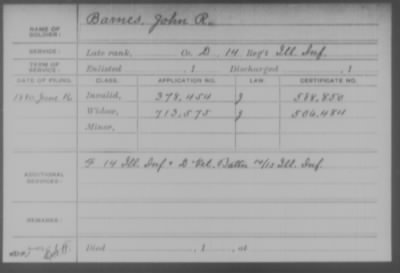 NAME OF SOLDIER: Barnes, John R.
SERVICE: Late rank, Co. D, 14 Reg't Ill. Inf.
TERM OF SERVICE: Enlisted , 1 Discharged , 1
DATE OF FILING. CLASS. APPLICATION NO. LAW. CERTIFICATE NO.
1880 June Invalid, 378.454 J 588.850
Widow, 713.575 J 506.484
Minor,
ADDITIONAL SERVICES: F 14 Ill. Inf & D Vet. Battn 14/15 Ill. Inf.
REMARKS:
Died , 1 , at